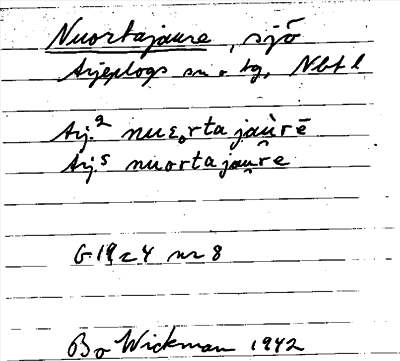 Nuortajaure, sjö
Arjeplogs sn o tg, Nbt l
Arj.² nuɛ̥rta jaùrē
Arj.⁵ nuorta jau̯re
G 19 c 4 nr 8
Bo Wickman 1942